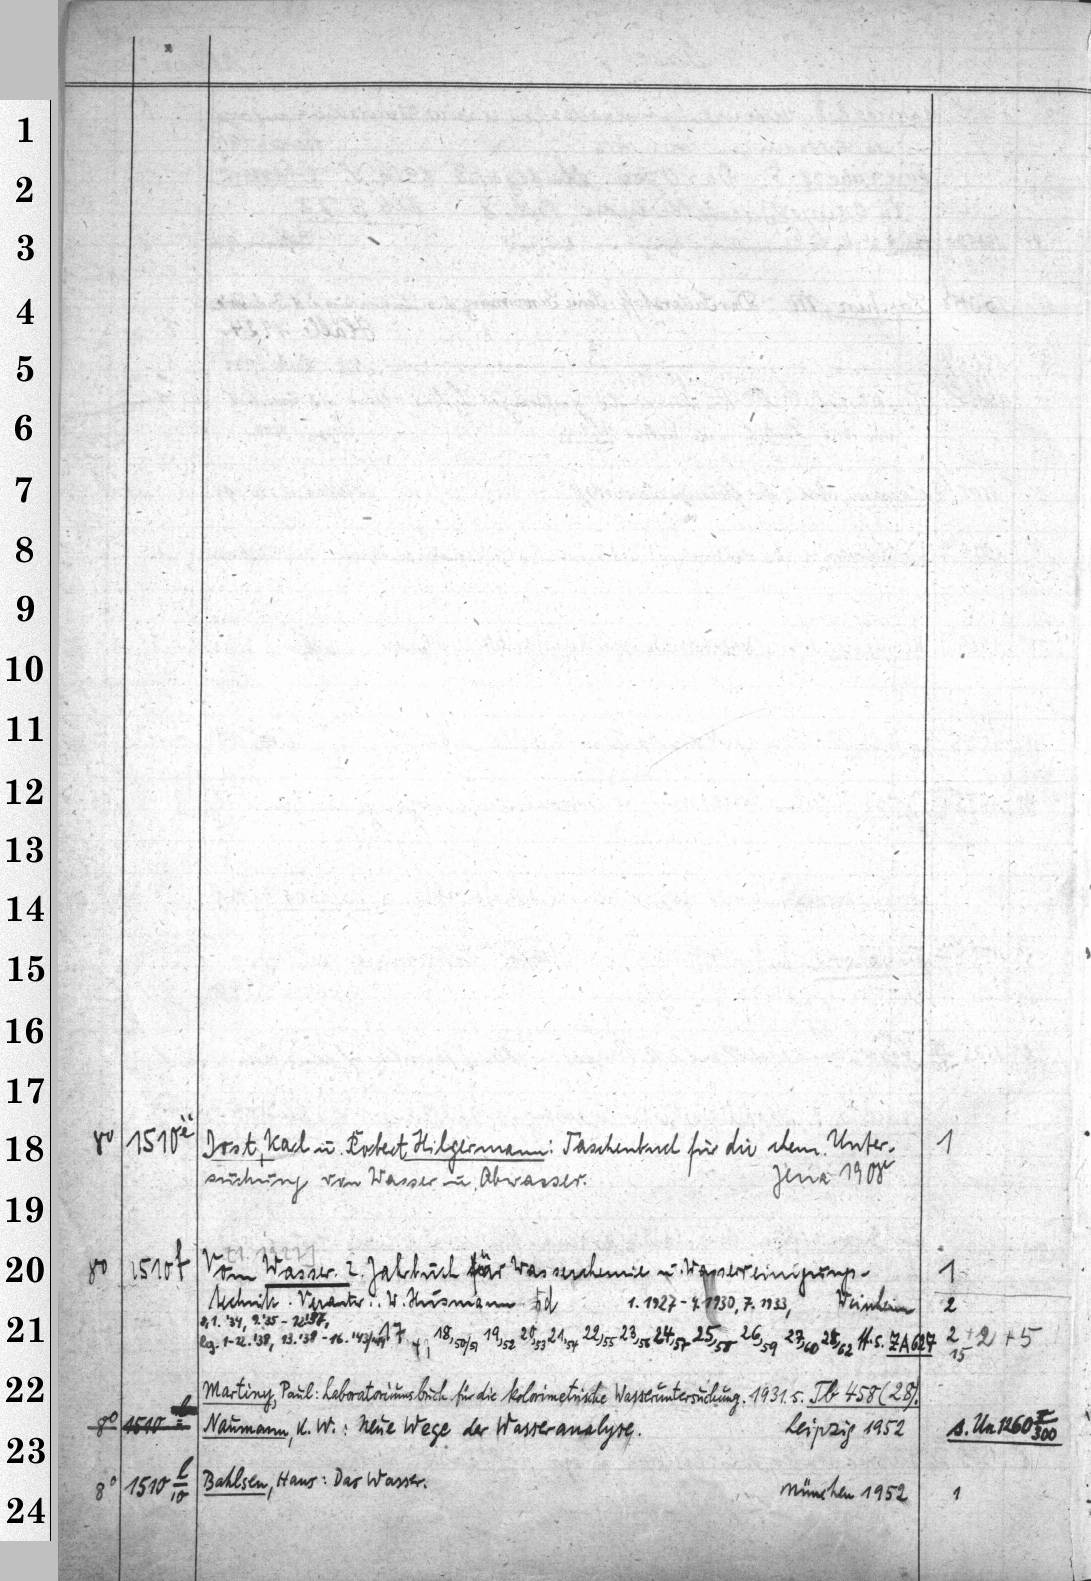 1
2
3
4
5
6
7
8
9
10
11
12
13
14
15
16
17
18
19
20
21
22
23
24
8° 1510 Dost, Karl u. Robert Hilgermann: Taschenbuch für die chem. Unter- 1
suchung von Wasser u. Abwasser. Jena 1908
8° 1510 f Vom Wasser. Jahrbuch für Wasserchemie u. Wasserreinigungs- 1
technik. Verantw.: W. Husmann Bd 1.1927-4.1930, 7.1933, Weinheim 2
17 18,50/51 19,52 20,53 21,54 22,55 23,56 24,57 25,58 26,59 27,60 28,62 H.s. ZA 627 2 + 2 + 5
15
Martiny, Paul: Laboratoriumsbuch für die kolorimetrische Wasseruntersuchung. 1931. s. Tb 458 (28).
8° 1510 l Naumann, K. W.: Neue Wege der Wasseranalyse. Leipzig 1952 s. Un 1260 F/300
8° 1510 l/10 Bahlsen, Hans: Das Wasser. München 1952 1